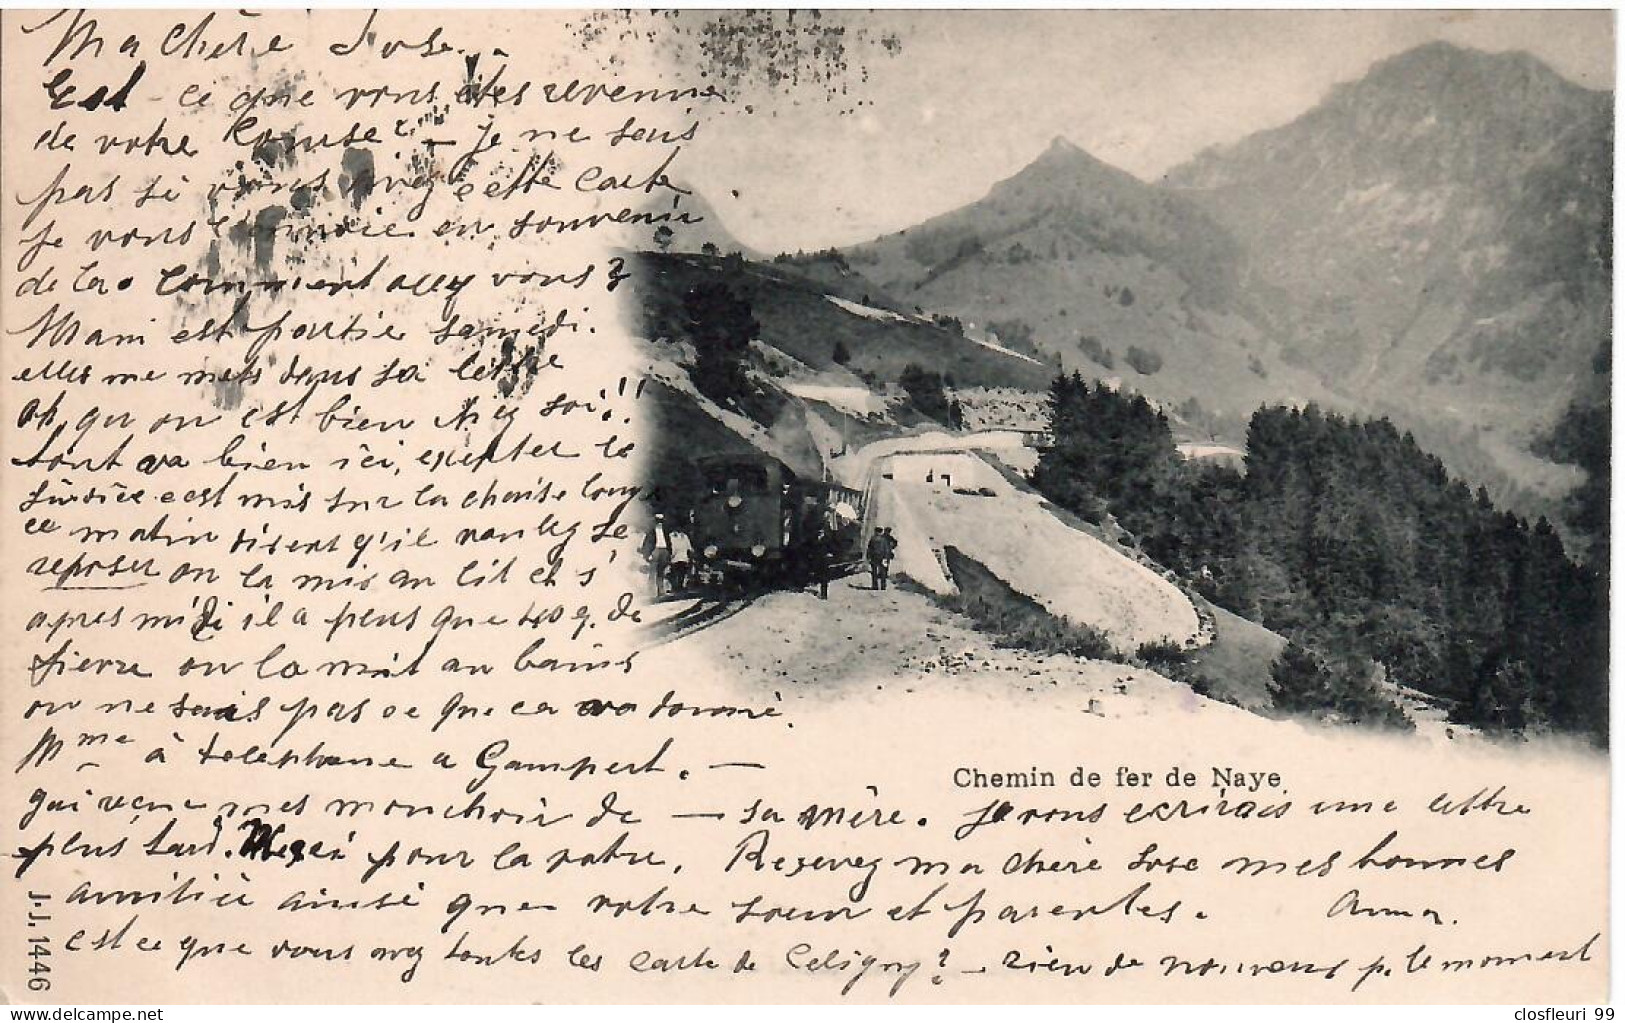 Ma Chère Jose.
Est-ce que vous êtes revenue
de votre Course - Je ne sais
pas si vous avez cette carte
Je vous l'envoie en souvenir
de la. Comment allez vous?
Mani est partie samedi.
elles me mets dans sa lettre
Ah, qu on est bien chez soi!!
tout va bien ici, excepter le
c'est mis sur la chaise longue
ce matin disent q'il voulez se
reposer on la mis au lit et s'
apres midi il a plus que 40 g. de
fierre on la mit au bains
on ne sais pas ce que ca va donné.
Mme à téléphone a Gampert. —
qui vene mes monchoir de — sa mère. Je vous ecrirais une lettre
plus tard. Merci pour la votre. Recevez ma chère Jose mes bonnes
amitiée ainsi que votre soeur et parentes. Anna.
est ce que vous avez toutes les carte de Celigny? - rien de nouveau p. le moment
Chemin de fer de Naye
J.J. 1446
www.delcampe.net
closfleuri 99